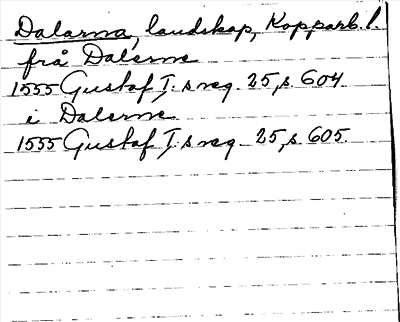 Dalarna, landskap, Kopparb. l.
från Dalerne
1555 Gustaf I:s reg. 25, s. 604
i Dalerne
1555 Gustaf I:s reg. 25, s. 605.